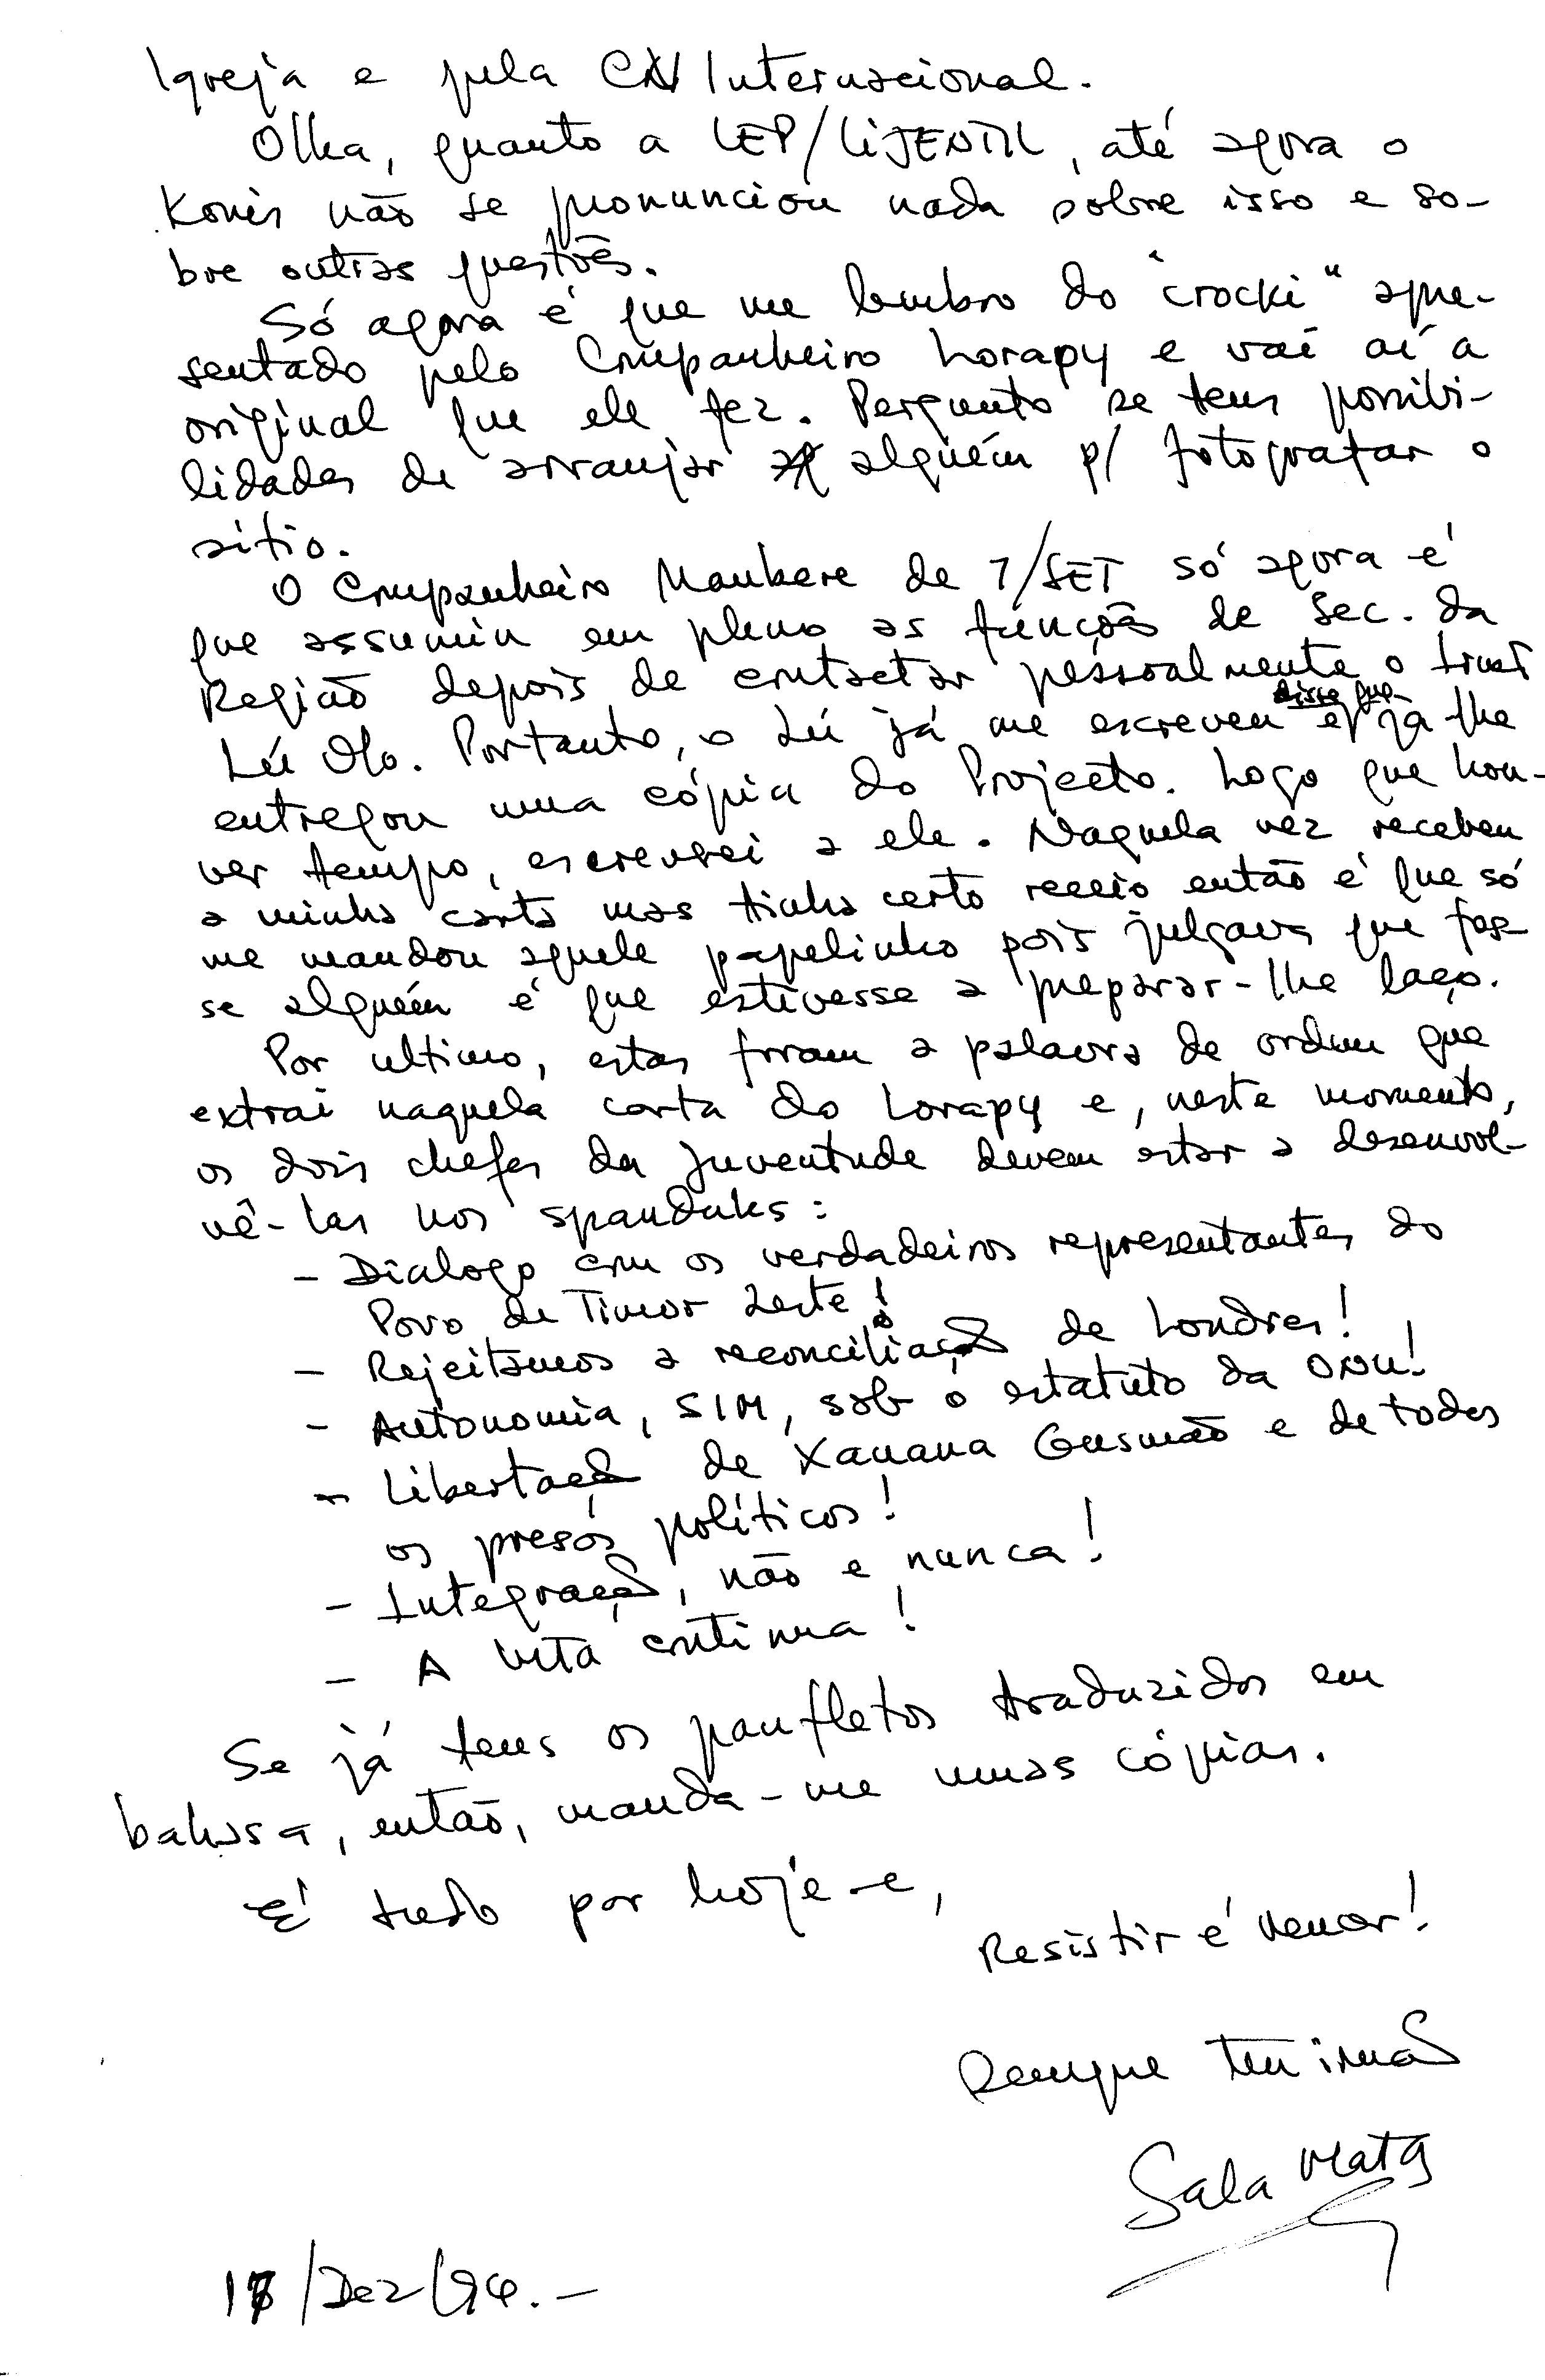 Igreja e pela CN Internacional.
Olha, quanto a LEP/LiJENTIL, até agora o
Konis não se pronunciou nada sobre isso e so-
bre outras questões.
Só agora é que me lembro do "crocki" apre-
sentado pelo Companheiro Lorapy e vai aí a
original que ele fez. Pergunto se tens possibi-
lidades de arranjar alguém p/ fotografar o
sítio.
O Companheiro Maubere de 7/SET só agora é
que assumiu em pleno as funções de Sec. da
Região depois de contactar pessoalmente o
Lú Olo. Portanto, o Lú já me escreveu e disse que já lhe
entregou uma cópia do Projecto. Logo que hou-
ver tempo, escreverei a ele. Naquela vez recebeu
a minha carta mas tinha certo receio então é que só
me mandou aquele papelinho pois julgava que fos-
se alguém é que estivesse a preparar-lhe laço.
Por ultimo, estas foram a palavra de ordem que
extraí naquela carta do Lorapy e, neste momento,
os dois chefes da juventude devem estar a desenvol-
vê-las nos spanduks:
- Dialogo com os verdadeiros representantes do
Povo de Timor Leste!
- Rejeitamos a reconciliação de Londres!
- Autonomia, SIM, sob o estatuto da ONU!
- Libertação de Xanana Gusmão e de todos
os presos políticos!
- Integração, não e nunca!
- A luta continua!
Se já tens os panfletos traduzidos em
bahasa, então, manda-me umas cópias.
É tudo por hoje e,
Resistir é vencer!
Sempre teu irmão
Sala Mata
17/Dez/94.-